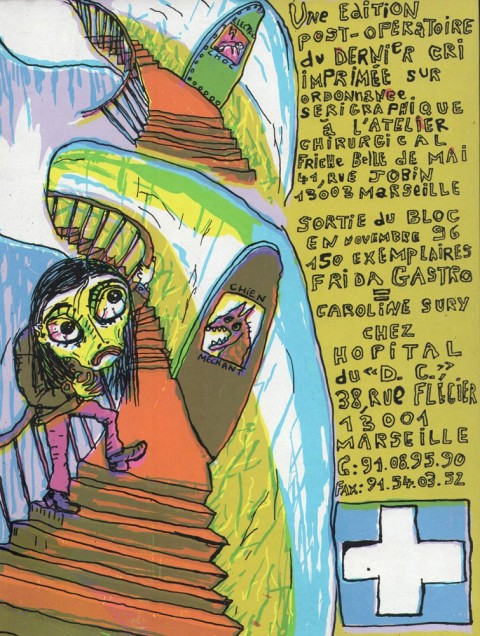 UNE EDITION
POST-OPERATOIRE
du DERNIER CRI
IMPRIMÉE SUR
ORDONNANCE
SERIGRAPHIQUE
à L'ATELIER
CHIRURGICAL
FRICHE BELLE DE MAI
41, RUE JOBIN
13003 MARSEILLE
SORTIE DU BLOC
EN NOVEMBRE 96
150 EXEMPLAIRES
FRIDA GASTRO
=
CAROLINE SURY
CHEZ
HOPITAL
du "D.C."
38, RUE FLÉGIER
13001
MARSEILLE
T: 91.08.95.90
FAX: 91.54.03.52
CHIEN
MECHANT